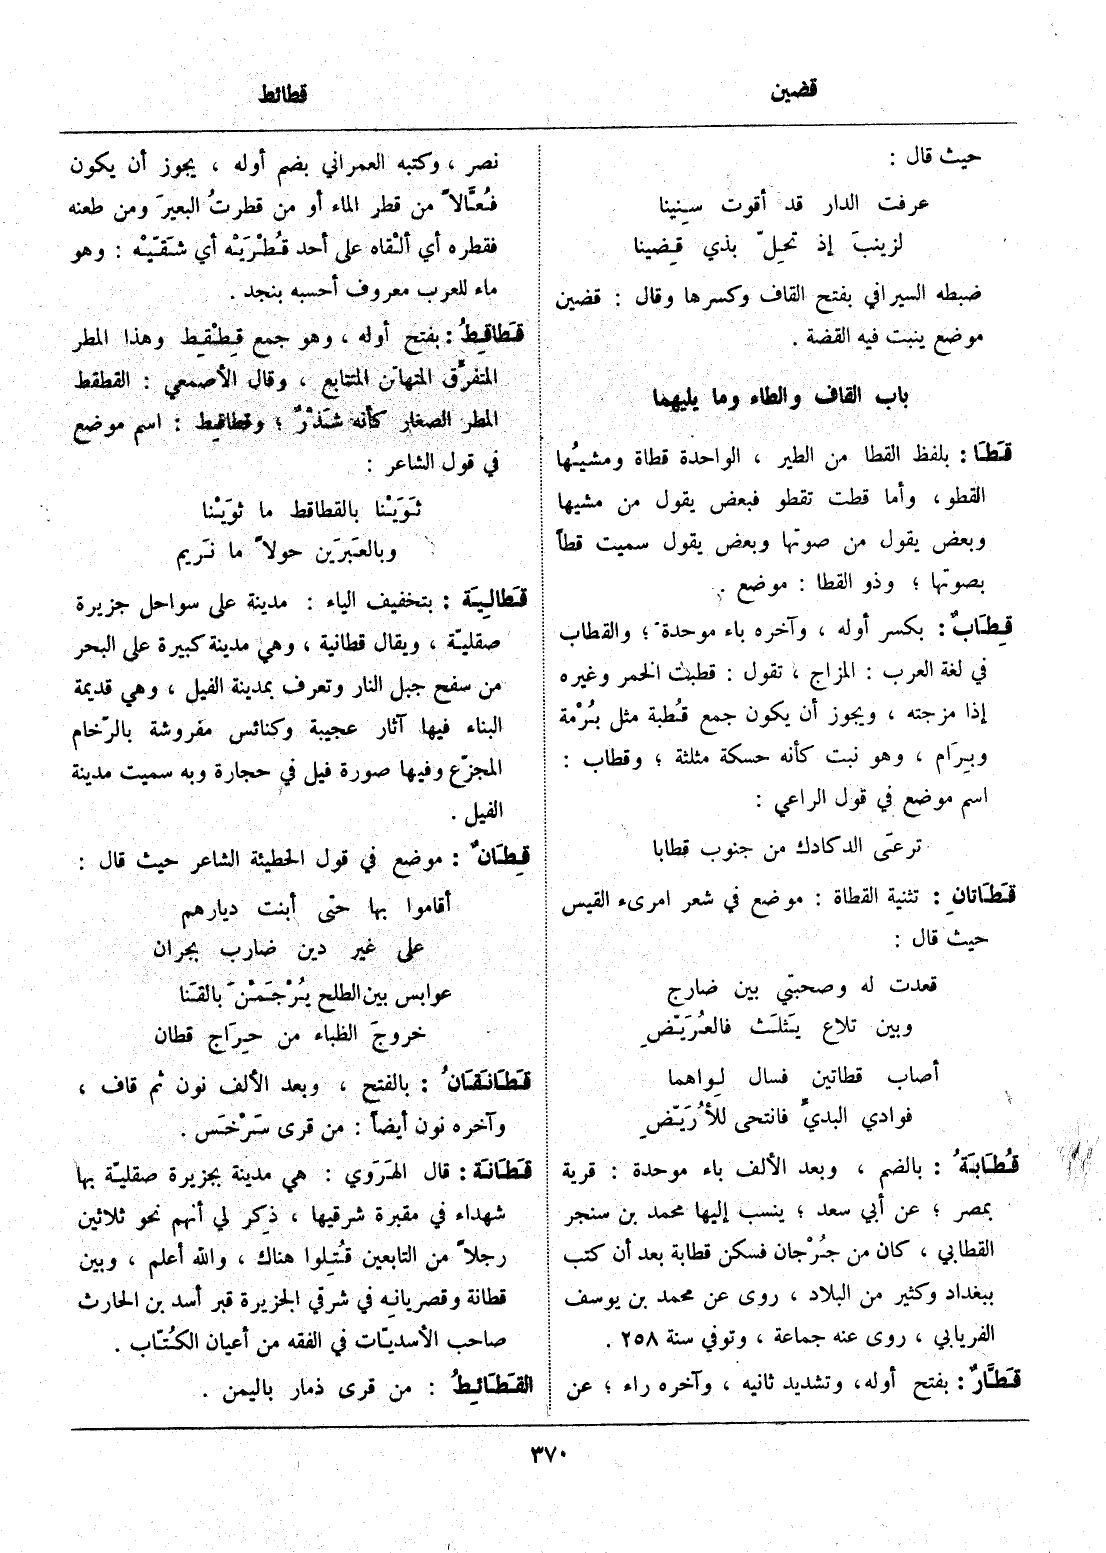 قضين
قطائط
حيث قال :
عرفت الدار قد أقوت سِنِينا
لزينبَ إذ تحِلّ بذي قِضِينا
ضبطه السيرافي بفتح القاف وكسرها وقال : قضين
موضع ينبت فيه القضة .
باب القاف والطاء وما يليهما
قَطَا : بلفظ القطا من الطير ، الواحدة قطاة ومشيُها
القطو ، وأما قطت تقطو فبعض يقول من مشيها
وبعض يقول من صوتها وبعض يقول سميت قطاً
بصوتها ؛ وذو القطا : موضع .
قِطَابٌ : بكسر أوله ، وآخره باء موحدة ؛ والقطاب
في لغة العرب : المزاج ، تقول : قطبتُ الخمر وغيره
إذا مزجته ، ويجوز أن يكون جمع قُطبة مثل بُرْمة
وبِرَام ، وهو نبت كأنه حسكة مثلثة ؛ وقطاب :
اسم موضع في قول الراعي :
ترعّى الدكادك من جنوب قطابا
قَطَاتانِ : تثنية القطاة : موضع في شعر امرىء القيس
حيث قال :
قعدت له وصحبتي بين ضارج
وبين تلاع يَثلَثَ فالعُرَيّضِ
أصاب قطاتين فسال لِواهما
فوادي البديّ فانتحى للأُرَيّضِ
قُطَابَةُ : بالضم ، وبعد الألف باء موحدة : قرية
بمصر ؛ عن أبي سعد ؛ ينسب إليها محمد بن سنجر
القطابي ، كان من جُرْجان فسكن قطابة بعد أن كتب
ببغداد وكثير من البلاد ، روى عن محمد بن يوسف
الفريابي ، روى عنه جماعة ، وتوفي سنة ٢٥٨ .
قَطَّارٌ : بفتح أوله، وتشديد ثانيه ، وآخره راء ؛ عن
نصر ، وكتبه العمراني بضم أوله ، يجوز أن يكون
فُعَّالاً من قطر الماء أو من قطرتُ البعيرَ ومن طعنه
فقطره أي ألْقاه على أحد قُطْرَيْه أي شَقّيْه : وهو
ماء للعرب معروف أحسبه بنجد .
قَطاقِطُ : بفتح أوله ، وهو جمع قِطْقِط وهذا المطر
المتفرِّق المتهاتن المتتابع ، وقال الأصمعي : القطقط
المطر الصغار كأنه شَذْرٌ ؛ وقطاقِط : اسم موضع
في قول الشاعر :
ثَوَيْنا بالقطاقط ما ثوَيْنا
وبالعَبرَين حولاً ما نَريم
قَطالِيَة : بتخفيف الياء : مدينة على سواحل جزيرة
صقليّة ، ويقال قطانية ، وهي مدينة كبيرة على البحر
من سفح جبل النار وتعرف بمدينة الفيل ، وهي قديمة
البناء فيها آثار عجيبة وكنائس مفروشة بالرّخام
المجزّع وفيها صورة فيل في حجارة وبه سميت مدينة
الفيل .
قِطَانٌ : موضع في قول الحطيئة الشاعر حيث قال :
أقاموا بها حتّى أبنت ديارهم
على غير دين ضارب بجران
عوابس بين الطلح يُرْجَمْنَ بالقَنا
خروجَ الظباء من حِرَاج قطان
قَطَانَقَانُ : بالفتح ، وبعد الألف نون ثم قاف ،
وآخره نون أيضاً : من قرى سَرْخَس .
قَطَانَة : قال الهَرَوي : هي مدينة بجزيرة صقليّة بها
شهداء في مقبرة شرقيها ، ذكِر لي أنهم نحو ثلاثين
رجلاً من التابعين قُتِلوا هناك ، والله أعلم ، وبين
قطانة وقصريانِه في شرقي الجزيرة قبر أسد بن الحارث
صاحب الأسديّات في الفقه من أعيان الكُتّاب .
القَطَائِطُ : من قرى ذمار باليمن .
٣٧٠